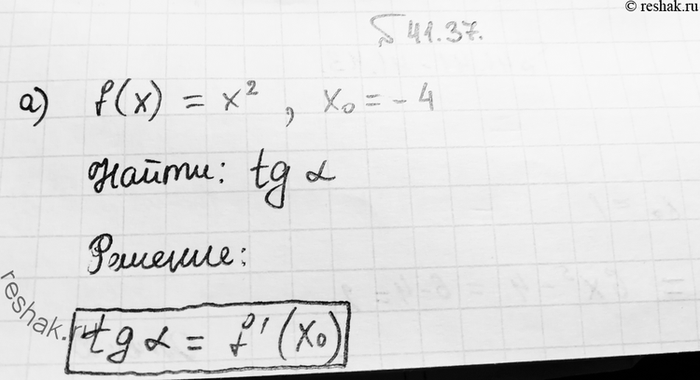 © reshak.ru
№ 41.37.
а) f(x) = x², x₀ = -4
Найти: tg α
Решение:
reshak.ru
tg α = f'(x₀)